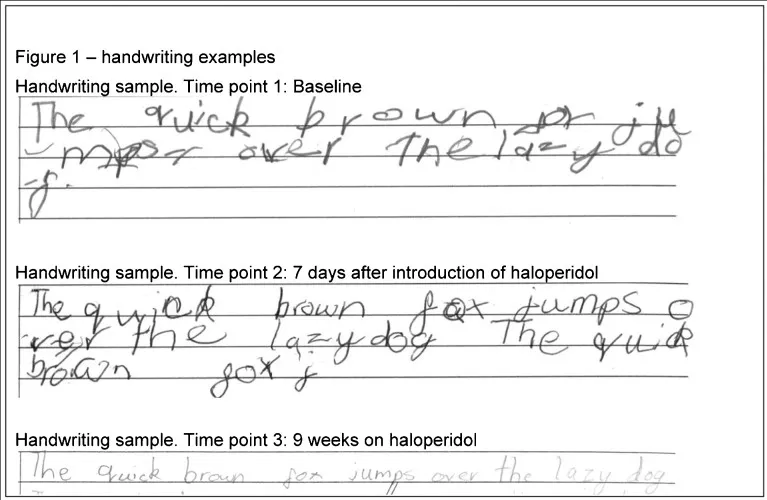 Figure 1 – handwriting examples
Handwriting sample. Time point 1: Baseline
The quick brown fox ju
mps over The lazy do
g.
Handwriting sample. Time point 2: 7 days after introduction of haloperidol
The quick brown fox jumps o
ver the lazy dog The quick
brown fox j
Handwriting sample. Time point 3: 9 weeks on haloperidol
The quick brown fox jumps over the lazy dog